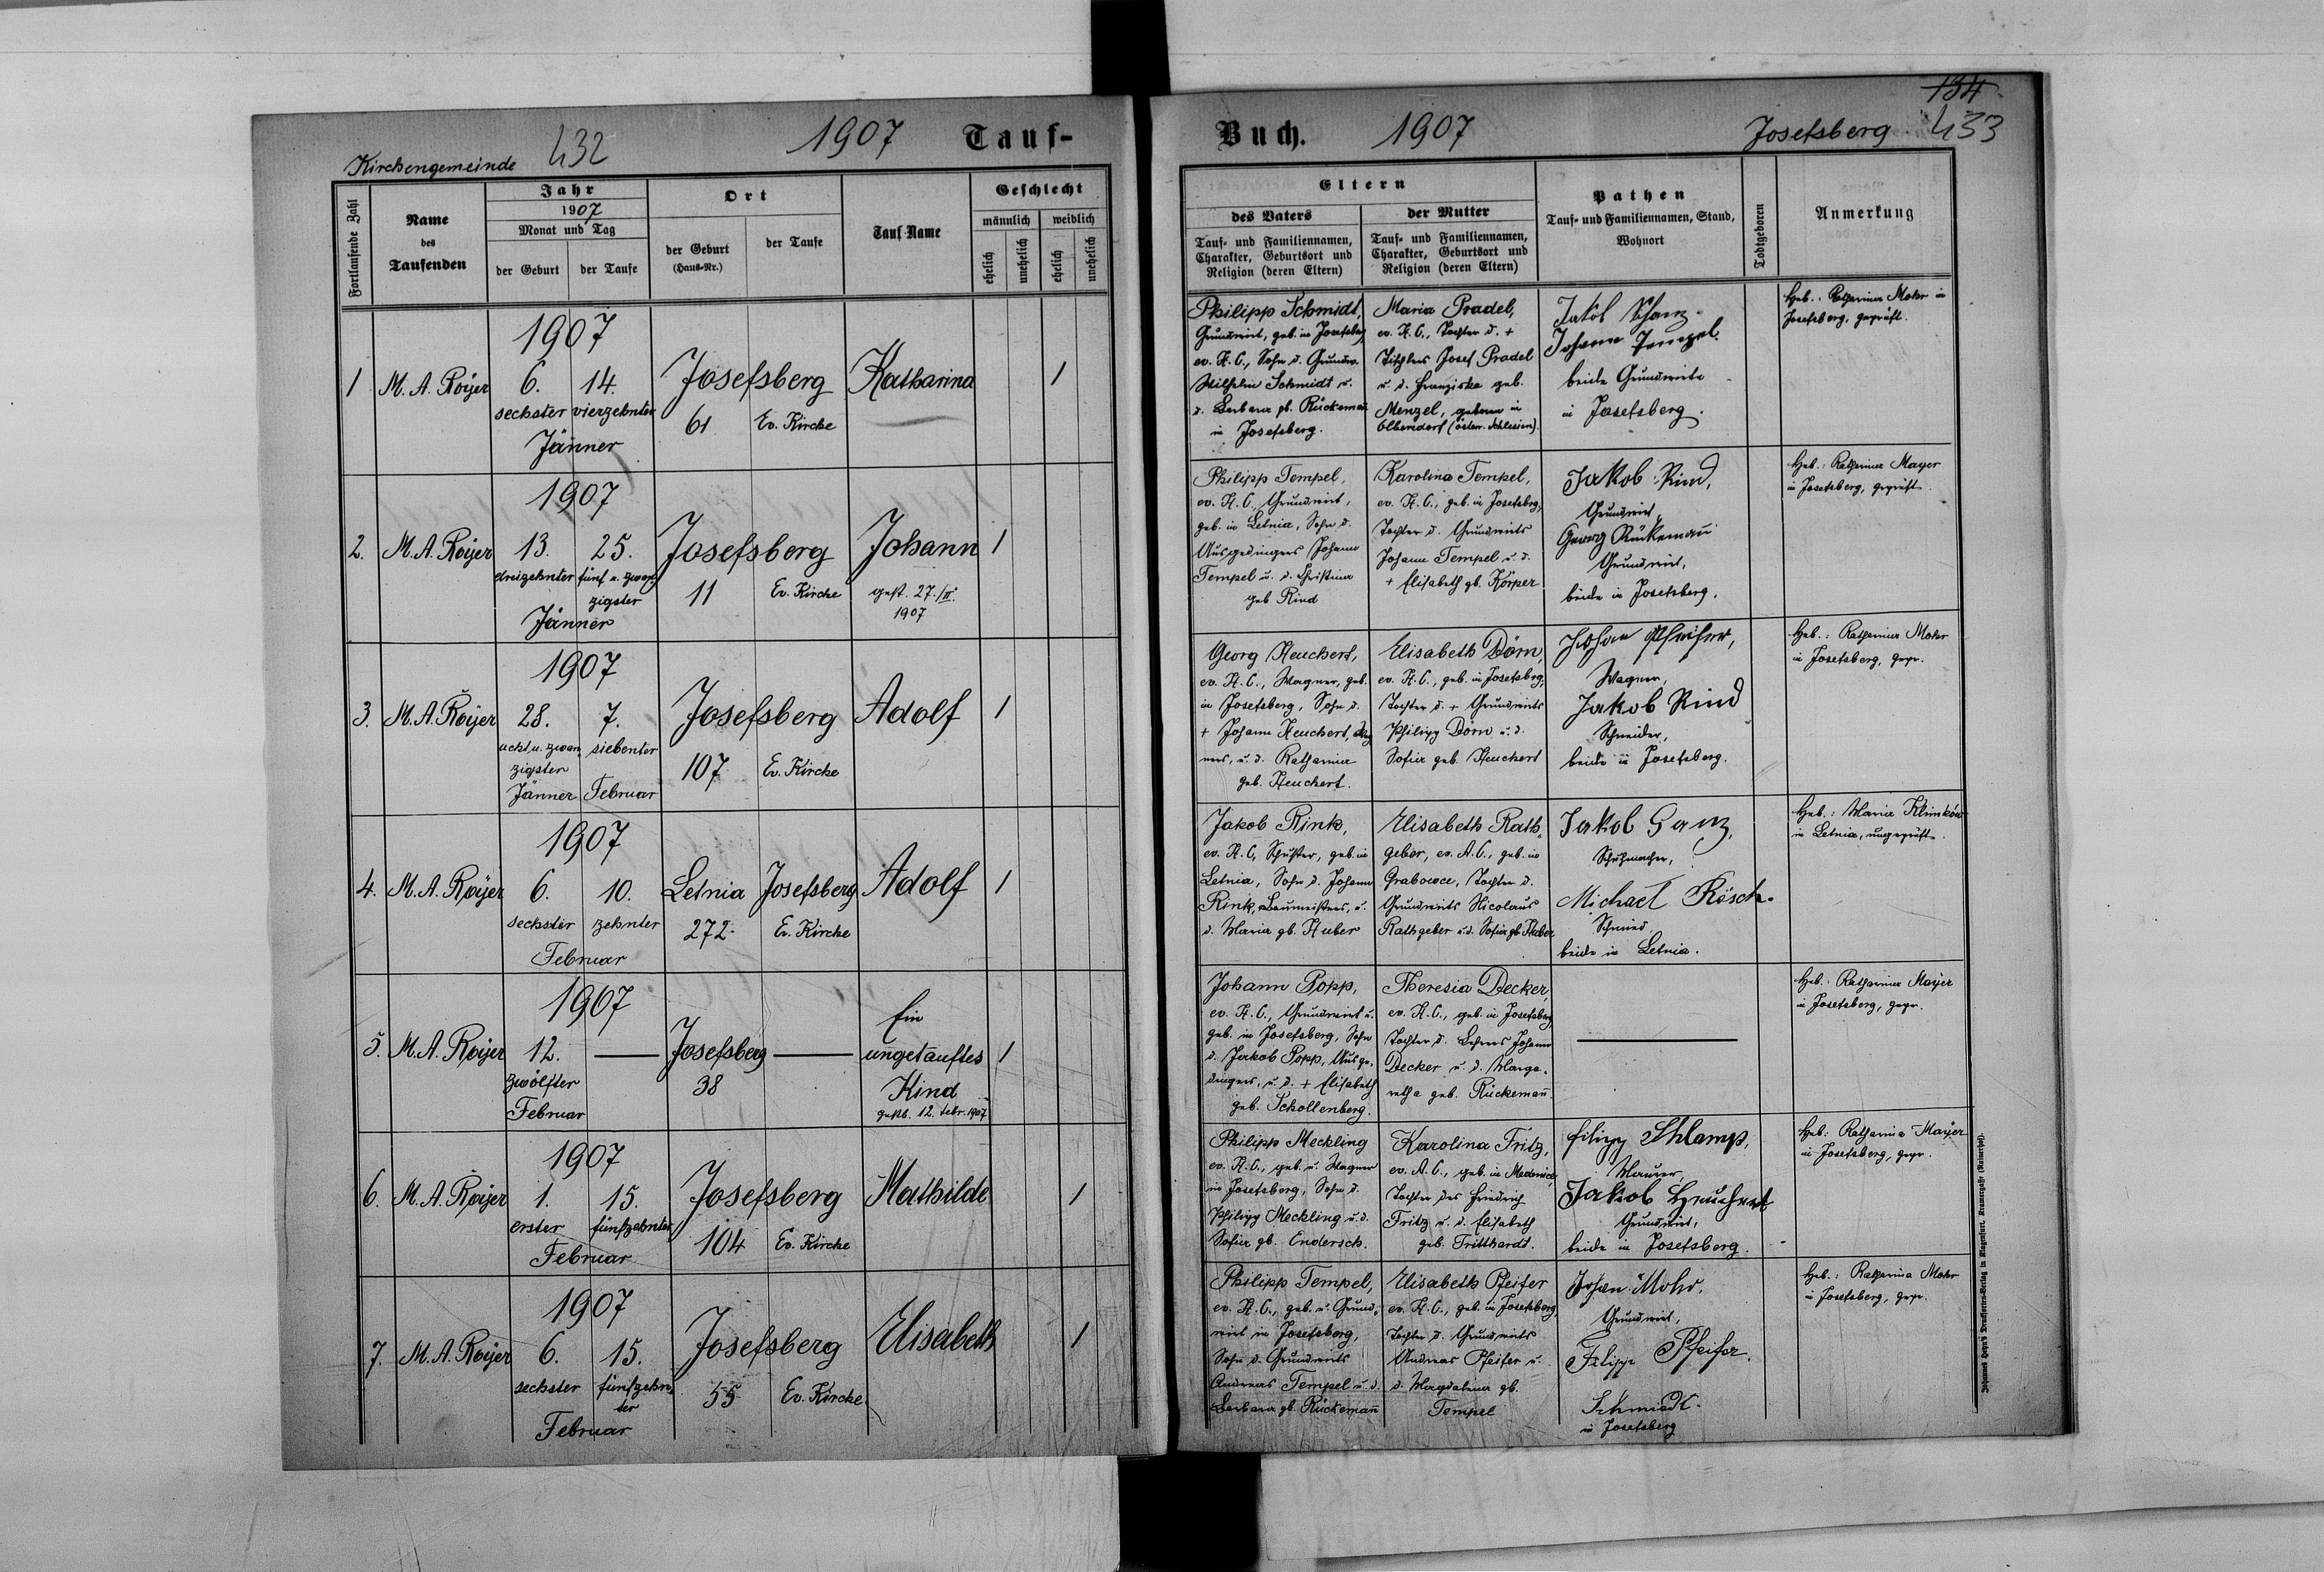 Kirchengemeinde 432 1907 Tauf-
Fortlaufende Zahl
Name
des
Taufenden
Jahr
1907
Monat und Tag
der Geburt
der Taufe
Ort
der Geburt
(Haus-Nr.)
der Taufe
Tauf-Name
Geschlecht
männlich weiblich
ehelich
unehelich
ehelich
unehelich
1907
1 M. A. Royer 6. 14. Josefsberg Katharina 1
sechster vierzehnter
61 Ev. Kirche
Jänner
1907
2. M. A. Royer 13. 25. Josefsberg Johann 1
dreizehnter fünf u. zwan-
zigster
11 Ev. Kirche gest. 27./II.
1907
Jänner
1907
3. M. A. Royer 28. 7. Josefsberg Adolf 1
acht u. zwan- siebenter
zigster
107 Ev. Kirche
Jänner Februar
1907
4. M. A. Royer 6. 10. Letnia Josefsberg Adolf 1
sechster zehnter
272. Ev. Kirche
Februar
1907
Ein
5. M. A. Royer 12. — Josefsberg — ungetauftes 1
zwölfter
38 Kind
Februar gestb. 12. Febr. 1907
1907
6. M. A. Royer 1. 15. Josefsberg Mathilde 1
erster fünfzehnter
104 Ev. Kirche
Februar
1907
7. M. A. Royer 6. 15. Josefsberg Elisabeth 1
sechster fünfzehn-
ter
55 Ev. Kirche
Februar
Buch. 1907 Josefsberg 134 433
Eltern
des Vaters
Tauf- und Familiennamen,
Charakter, Geburtsort und
Religion (deren Eltern)
der Mutter
Tauf- und Familiennamen,
Charakter, Geburtsort und
Religion (deren Eltern)
Pathen
Tauf- und Familiennamen, Stand,
Wohnort
Todtgeboren
Anmerkung
Philipp Schmidt,
Grundwirt, geb. in Josefsberg
ev. H. C., Sohn d. Grundw.
Wilhelm Schmidt u.
d. Barbara gb. Rückemañ
in Josefsberg.
Maria Pradel,
ev. H. C., Tochter d. +
Tischlers Josef Pradel
u. d. Franziska geb.
Menzel, geboren in
Olbersdorf (österr. Schlesien).
Jakob Schanz
Johann Tempel
beide Grundwirte
in Josefsberg.
Heb.: Katharina Mohr in
Josefsberg, geprüft.
Philipp Tempel,
ev. H. C., Grundwirt,
geb. in Letnia, Sohn d.
Ausgedingers Johann
Tempel u. d. Christina
geb Rind
Karolina Tempel,
ev. H. C., geb. in Josefsberg,
Tochter d. Grundwirts
Johann Tempel u. d.
+ Elisabeth gb. Körper
Jakob Rind,
Grundwirt,
Georg Rückemañ
Grundwirt,
beide in Josefsberg.
Heb.: Katharina Mayer
in Josefsberg, geprüft.
Georg Heuchert,
ev. H. C., Wagner, geb.
in Josefsberg, Sohn d.
+ Johann Heuchert, Wag
ners, u. d. Katharina
geb. Heuchert.
Elisabeth Dörn,
ev. H. C., geb. in Josefsberg,
Tochter d. + Grundwirts
Philipp Dörn u. d.
Sofia geb. Heuchert
Johan Pfeifer,
Wagner,
Jakob Rind
Schneider,
beide in Josefsberg.
Heb.: Katharina Mohr
in Josefsberg, gepr.
Jakob Rink,
ev. H. C., Schuster, geb. in
Letnia, Sohn d. Johann
Rink, Baumeisters, u.
d. Maria gb. Huber
Elisabeth Rath-
geber, ev. A. C., geb. in
Grabowce, Tochter d.
Grundwirts Nicolaus
Rathgeber u. d. Sofia gb. Huber
Jakob Ganz,
Schuhmacher,
Michael Rösch.
Schmied
beide in Letnia.
Heb.: Maria Klimków
in Letnia, ungeprüft.
Johann Popp,
ev. H. C., Grundwirt u.
geb. in Josefsberg, Sohn
d. Jakob Popp, Ausge-
dingers, u. d. + Elisabeth
geb. Schollenberg.
Theresia Decker,
ev. H. C., geb. in Josefsberg
Tochter d. Lehrers Johann
Decker u. d. Marga-
retha geb. Rückemañ.
Heb.: Katharina Mayer
in Josefsberg, gepr.
Philipp Meckling
ev. H. C., geb. u. Wagner
in Josefsberg, Sohn d.
Philipp Meckling u. d.
Sofia gb. Endersch.
Karolina Fritz,
ev. A. C., geb. in Medenice,
Tochter des Friedrich
Fritz u. d. Elisabeth
geb. Tritthardt.
Filipp Schlamp,
Maurer
Jakob Heuchert
Grundwirt,
beide in Josefsberg.
Heb.: Katharina Mayer
in Josefsberg, gepr.
Philipp Tempel,
ev. H. C., geb. u. Grund-
wirt in Josefsberg,
Sohn d. Grundwirts
Andreas Tempel u. d.
Barbara gb. Rückemañ
Elisabeth Pfeifer
ev. H. C., geb. in Josefsberg,
Tochter d. Grundwirts
Andreas Pfeifer u.
d. Magdalena gb.
Tempel
Johan Mohr,
Grundwirt,
Filipp Pfeifer.
Schmiedt.
in Josefsberg
Heb.: Katharina Mohr
in Josefsberg, gepr.